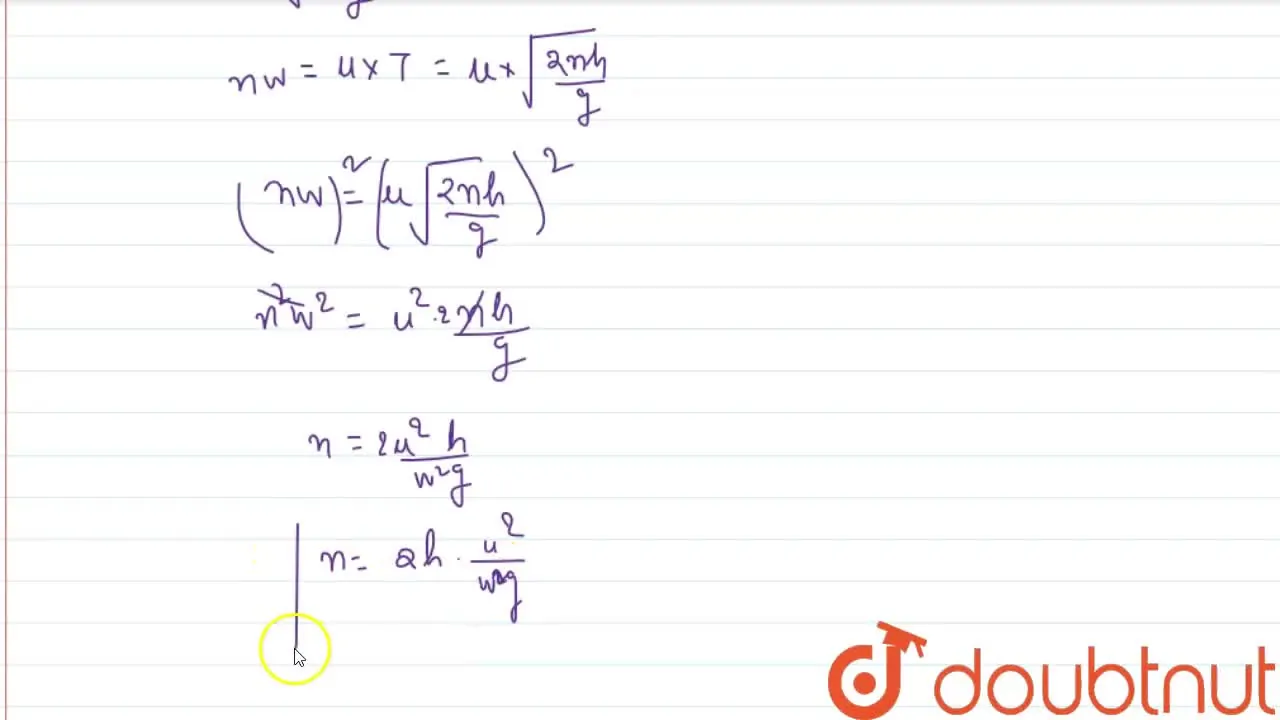 √ g
nw = u × T = u × √(2nh/g)
(nw)² = (u √(2nh/g))²
n²w² = u² · 2nh/g
n = 2u² h/w²g
n = 2h · u²/w²g
doubtnut